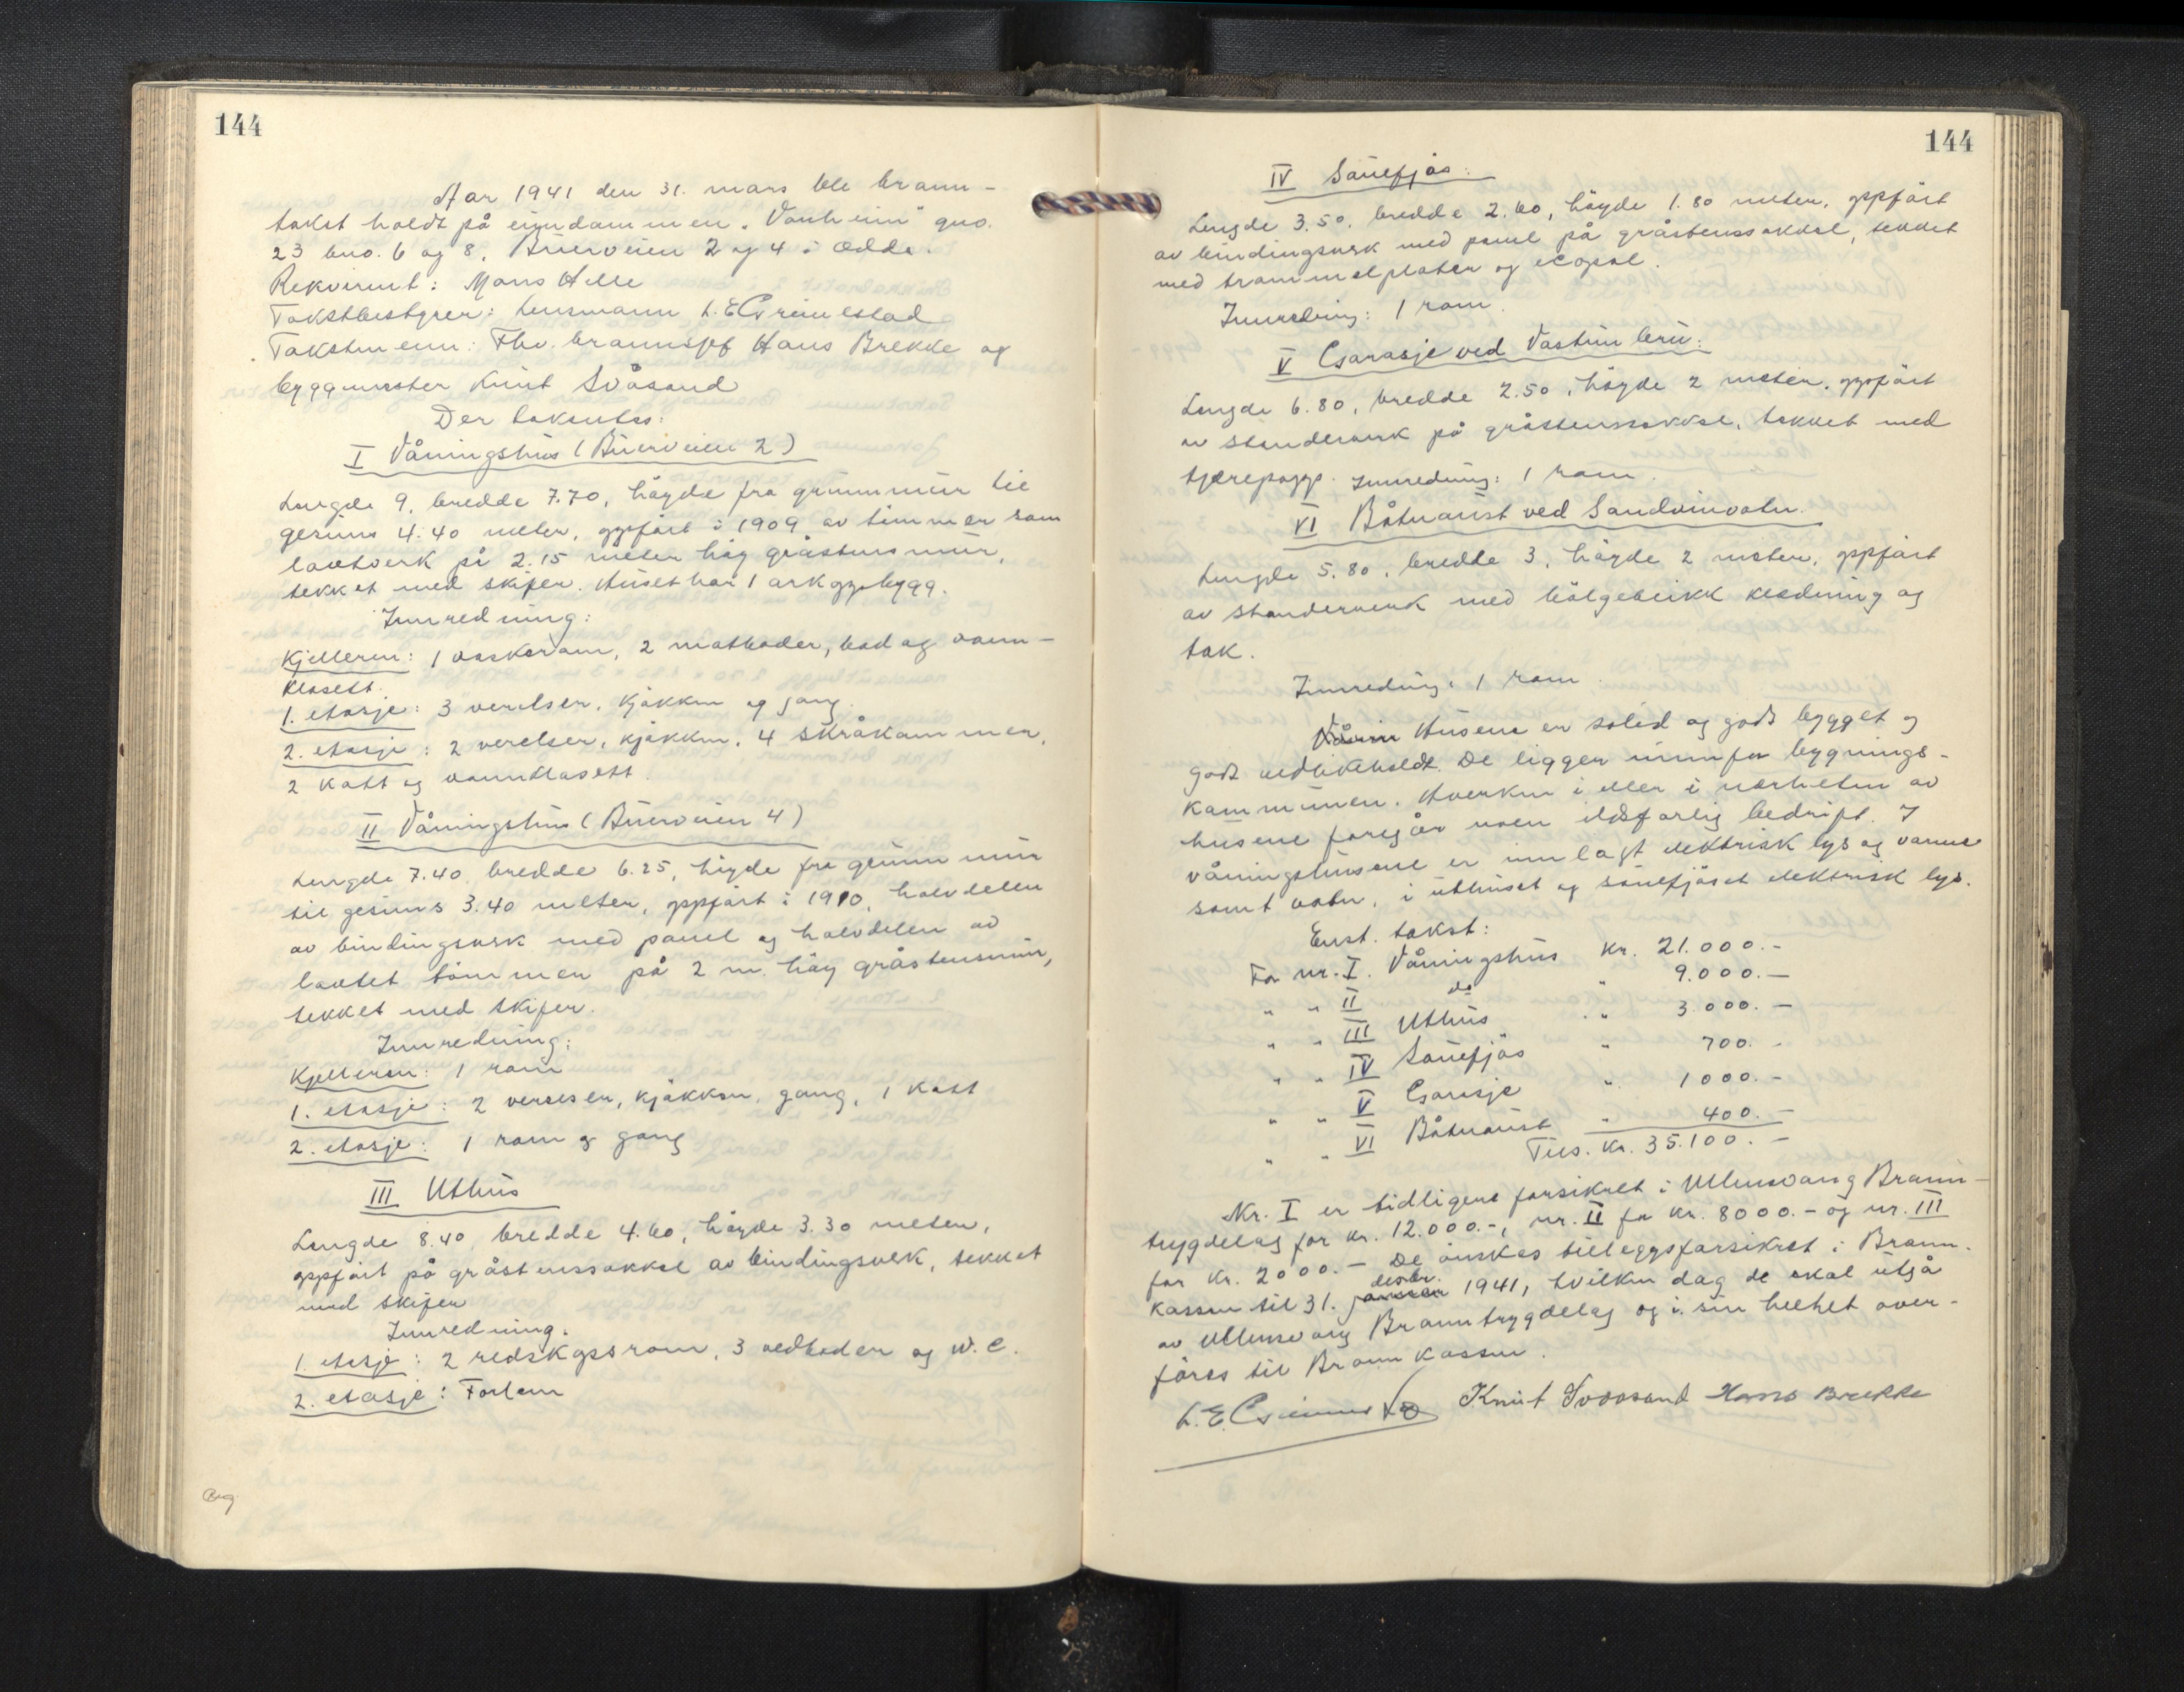 144
Aar 1941 den 31. mars ble brann-
takst holdt på eiendommen „Vonheim" gno.
23 bno. 6 og 8, Buerveien 2 og 4 i Odda.
Rekvirent: Mons Helle
Takstbestyrer: Lensmann L. E. Grimestad
Takstmenn: Fhv. brannsjef Hans Brekke og
byggmester Knut Svåsand
Der takseres:
I Våningshus (Buerveien 2)
Lengde 9, bredde 7.70, høyde fra grunnmur til
gesims 4.40 meter, oppført i 1909 av timmer som
laftverk på 2.15 meter høy gråstensmur,
tekket med skifer. Huset har 1 arkoppbygg.
Innredning:
Kjelleren: 1 vaskerom, 2 matboder, bad og vann-
klosett.
1. etasje: 3 verelser, kjøkken og gang.
2. etasje: 2 verelser, kjøkken, 4 skråkammer,
2 kott og vannklosett.
II Våningshus (Buerveien 4)
Lengde 7.40, bredde 6.25, høyde fra grunnmur
til gesims 3.40 meter, oppført i 1910, halvdelen
av bindingsverk med panel og halvdelen av
laftet tømmer på 2 m. høy gråstensmur,
tekket med skifer.
Innredning:
Kjelleren: 1 rom
1. etasje: 2 verelser, kjøkken, gang, 1 kott
2. etasje: 1 rom og gang
III Uthus
Lengde 8.40, bredde 4.60, høyde 3.30 meter,
oppført på gråstenssokkel av bindingsverk, tekket
med skifer
Innredning.
1. etasje: 2 redskapsrom, 3 vedboder og W.C.
2. etasje: Forlem
144
IV Sauefjøs:
Lengde 3.50, bredde 2.60, høyde 1.80 meter, oppført
av bindingsverk med panel på gråstenssokkel, tekket
med trommelplater og icopal.
Innredning: 1 rom.
V Garasje ved Vastun bru:
Lengde 6.80, bredde 2.50, høyde 2 meter, oppført
av stenderverk på gråstenssokkel, tekket med
tjærepapp. Innredning: 1 rom.
VI Båtnaust ved Sandvinvatn.
Lengde 5.80, bredde 3, høyde 2 meter, oppført
av stenderverk med bølgeblikk kledning og
tak.
Innredning: 1 rom.
Husene er solid og godt bygget og
godt vedlikeholdt. De ligger innenfor bygnings-
kommunen. Hverken i eller i nærheten av
husene foregår noen ildsfarlig bedrift. I
våningshusene er innlagt elektrisk lys og varme
samt vatn, i uthuset og sauefjøset elektrisk lys.
Enst. takst:
For nr. I. Våningshus kr. 21.000.-
" " II do " 9.000.-
" " III Uthus " 3.000.-
" " IV Sauefjøs " 700.-
" " V Garasje " 1000.-
" " VI Båtnaust " 400.-
Tils. kr. 35.100.-
Nr. I er tidligere forsikret i Ullensvang Brann-
trygdelag for kr. 12.000.-, nr. II for kr. 8000.- og nr. III
for kr. 2000.- De ønskes tilleggsforsikret i Brann-
kassen til 31. desbr. 1941, hvilken dag de skal utgå
av Ullensvang Branntrygdelag og i sin helhet over-
føres til Brannkassen.
L. E. Grimestad Knut Svaasand Hans Brekke